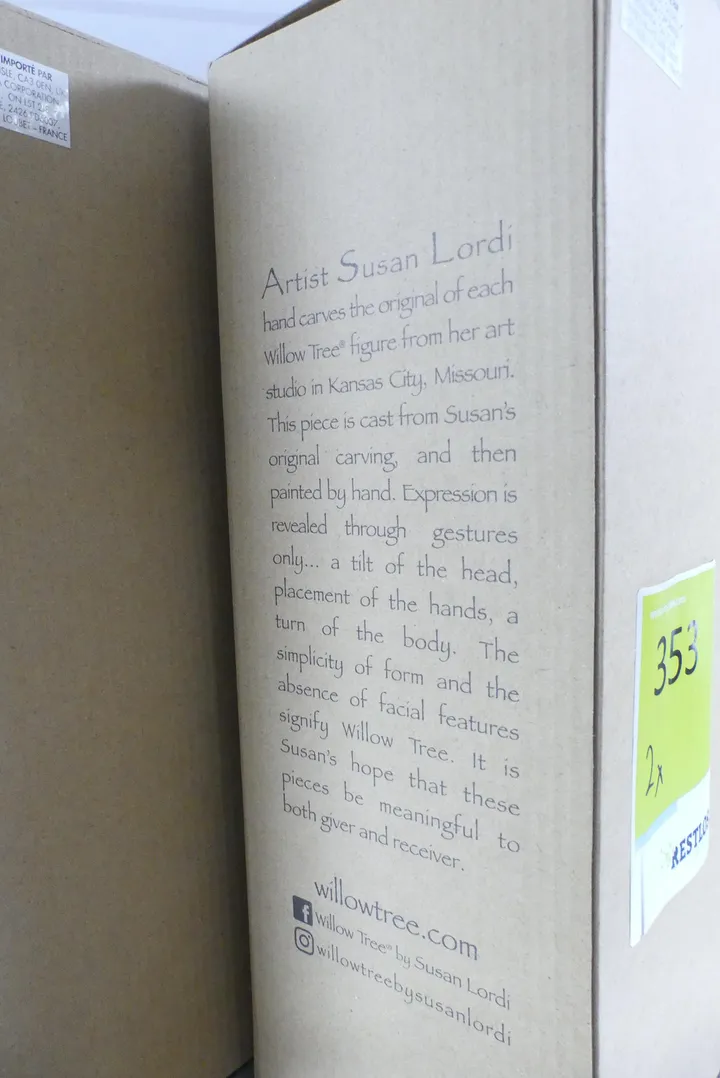 IMPORTÉ PAR
CA3 0EN, UK
CORPORATION
ON L5T 2
2426
FRANCE
Artist Susan Lordi
hand carves the original of each
Willow Tree® figure from her art
studio in Kansas City, Missouri.
This piece is cast from Susan's
original carving, and then
painted by hand. Expression is
revealed through gestures
only... a tilt of the head,
placement of the hands, a
turn of the body. The
simplicity of form and the
absence of facial features
signify Willow Tree. It is
Susan's hope that these
pieces be meaningful to
both giver and receiver.
willowtree.com
Willow Tree® by Susan Lordi
willowtreebysusanlordi
353
2x